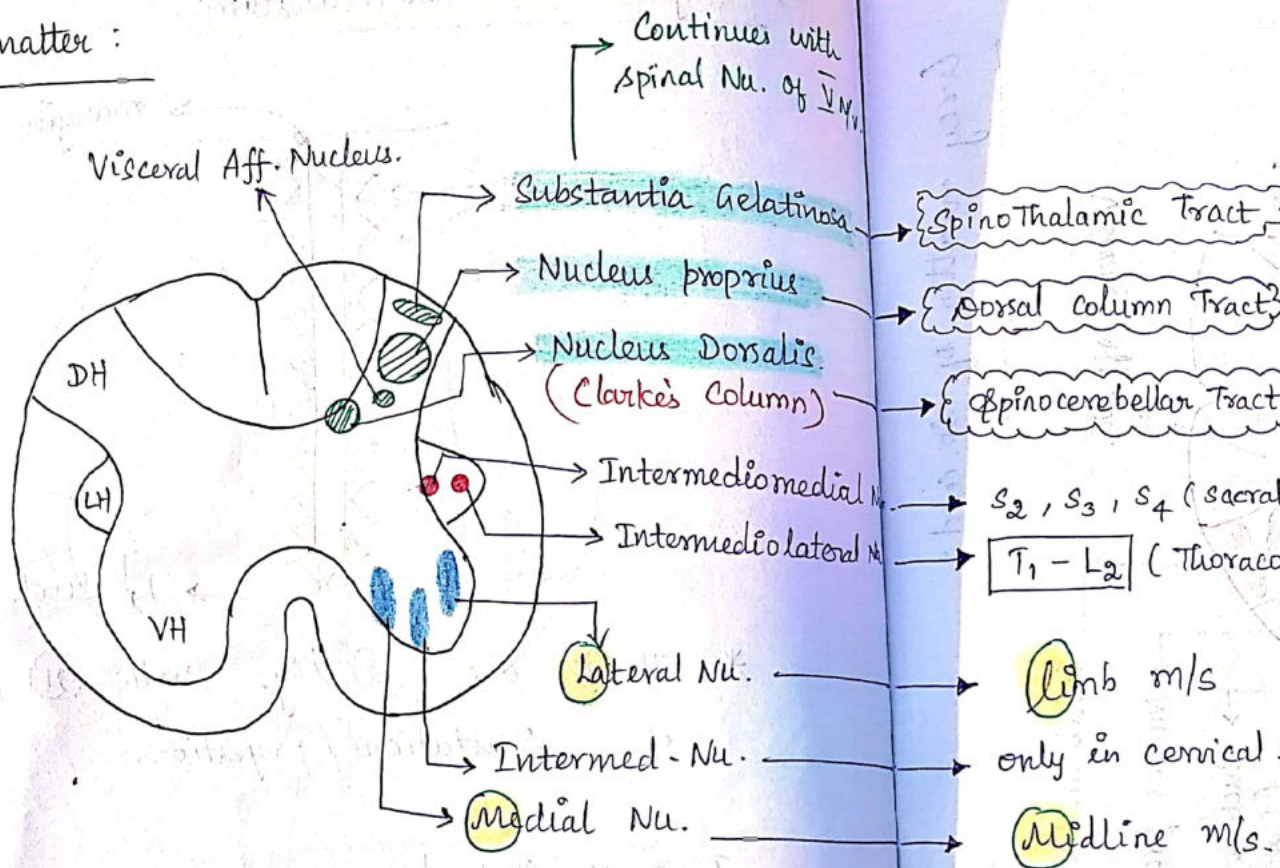 matter :
Continues with
spinal Nu. of V N/v.
Visceral Aff. Nucleus.
Substantia Gelatinosa
SpinoThalamic Tract
Nucleus proprius
Dorsal Column Tract
Nucleus Dorsalis.
(Clarke's Column)
Spinocerebellar Tract
DH
LH
VH
Intermediomedial N
S2, S3, S4 (Sacral
Intermediolateral N
T1 - L2 (Thoraco
Lateral Nu.
Limb m/s
Intermed - Nu.
only in cervical
Medial Nu.
Midline m/s.